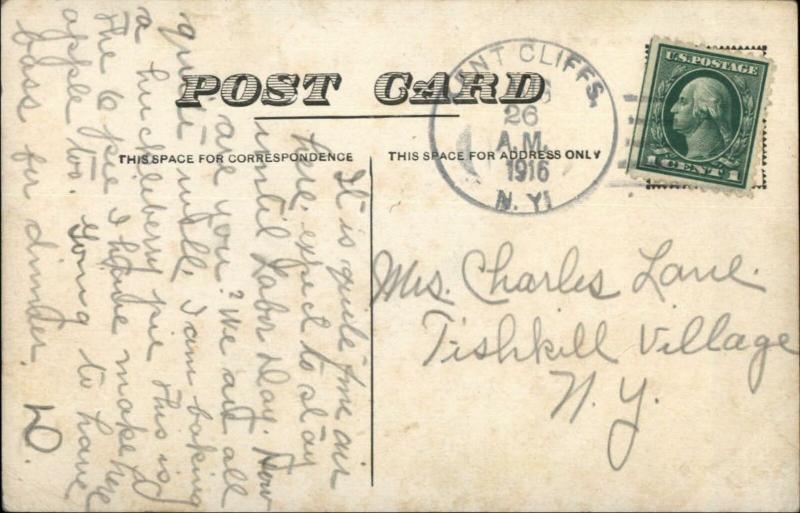 POST CARD
THIS SPACE FOR CORRESPONDENCE
THIS SPACE FOR ADDRESS ONLY
ENT CLIFFS,
26
A.M.
1916
N.Y.
U.S.POSTAGE
1 CENT 1
It is quite fine air
here, expect to stay
until Labor Day. How
are you? We are all
quite well. I am baking
a huckleberry pie this is
the 6 pie I have made here
apple too. Going to have
bass for dinner. D.
Mrs. Charles Lane.
Fishkill Village
N.Y.